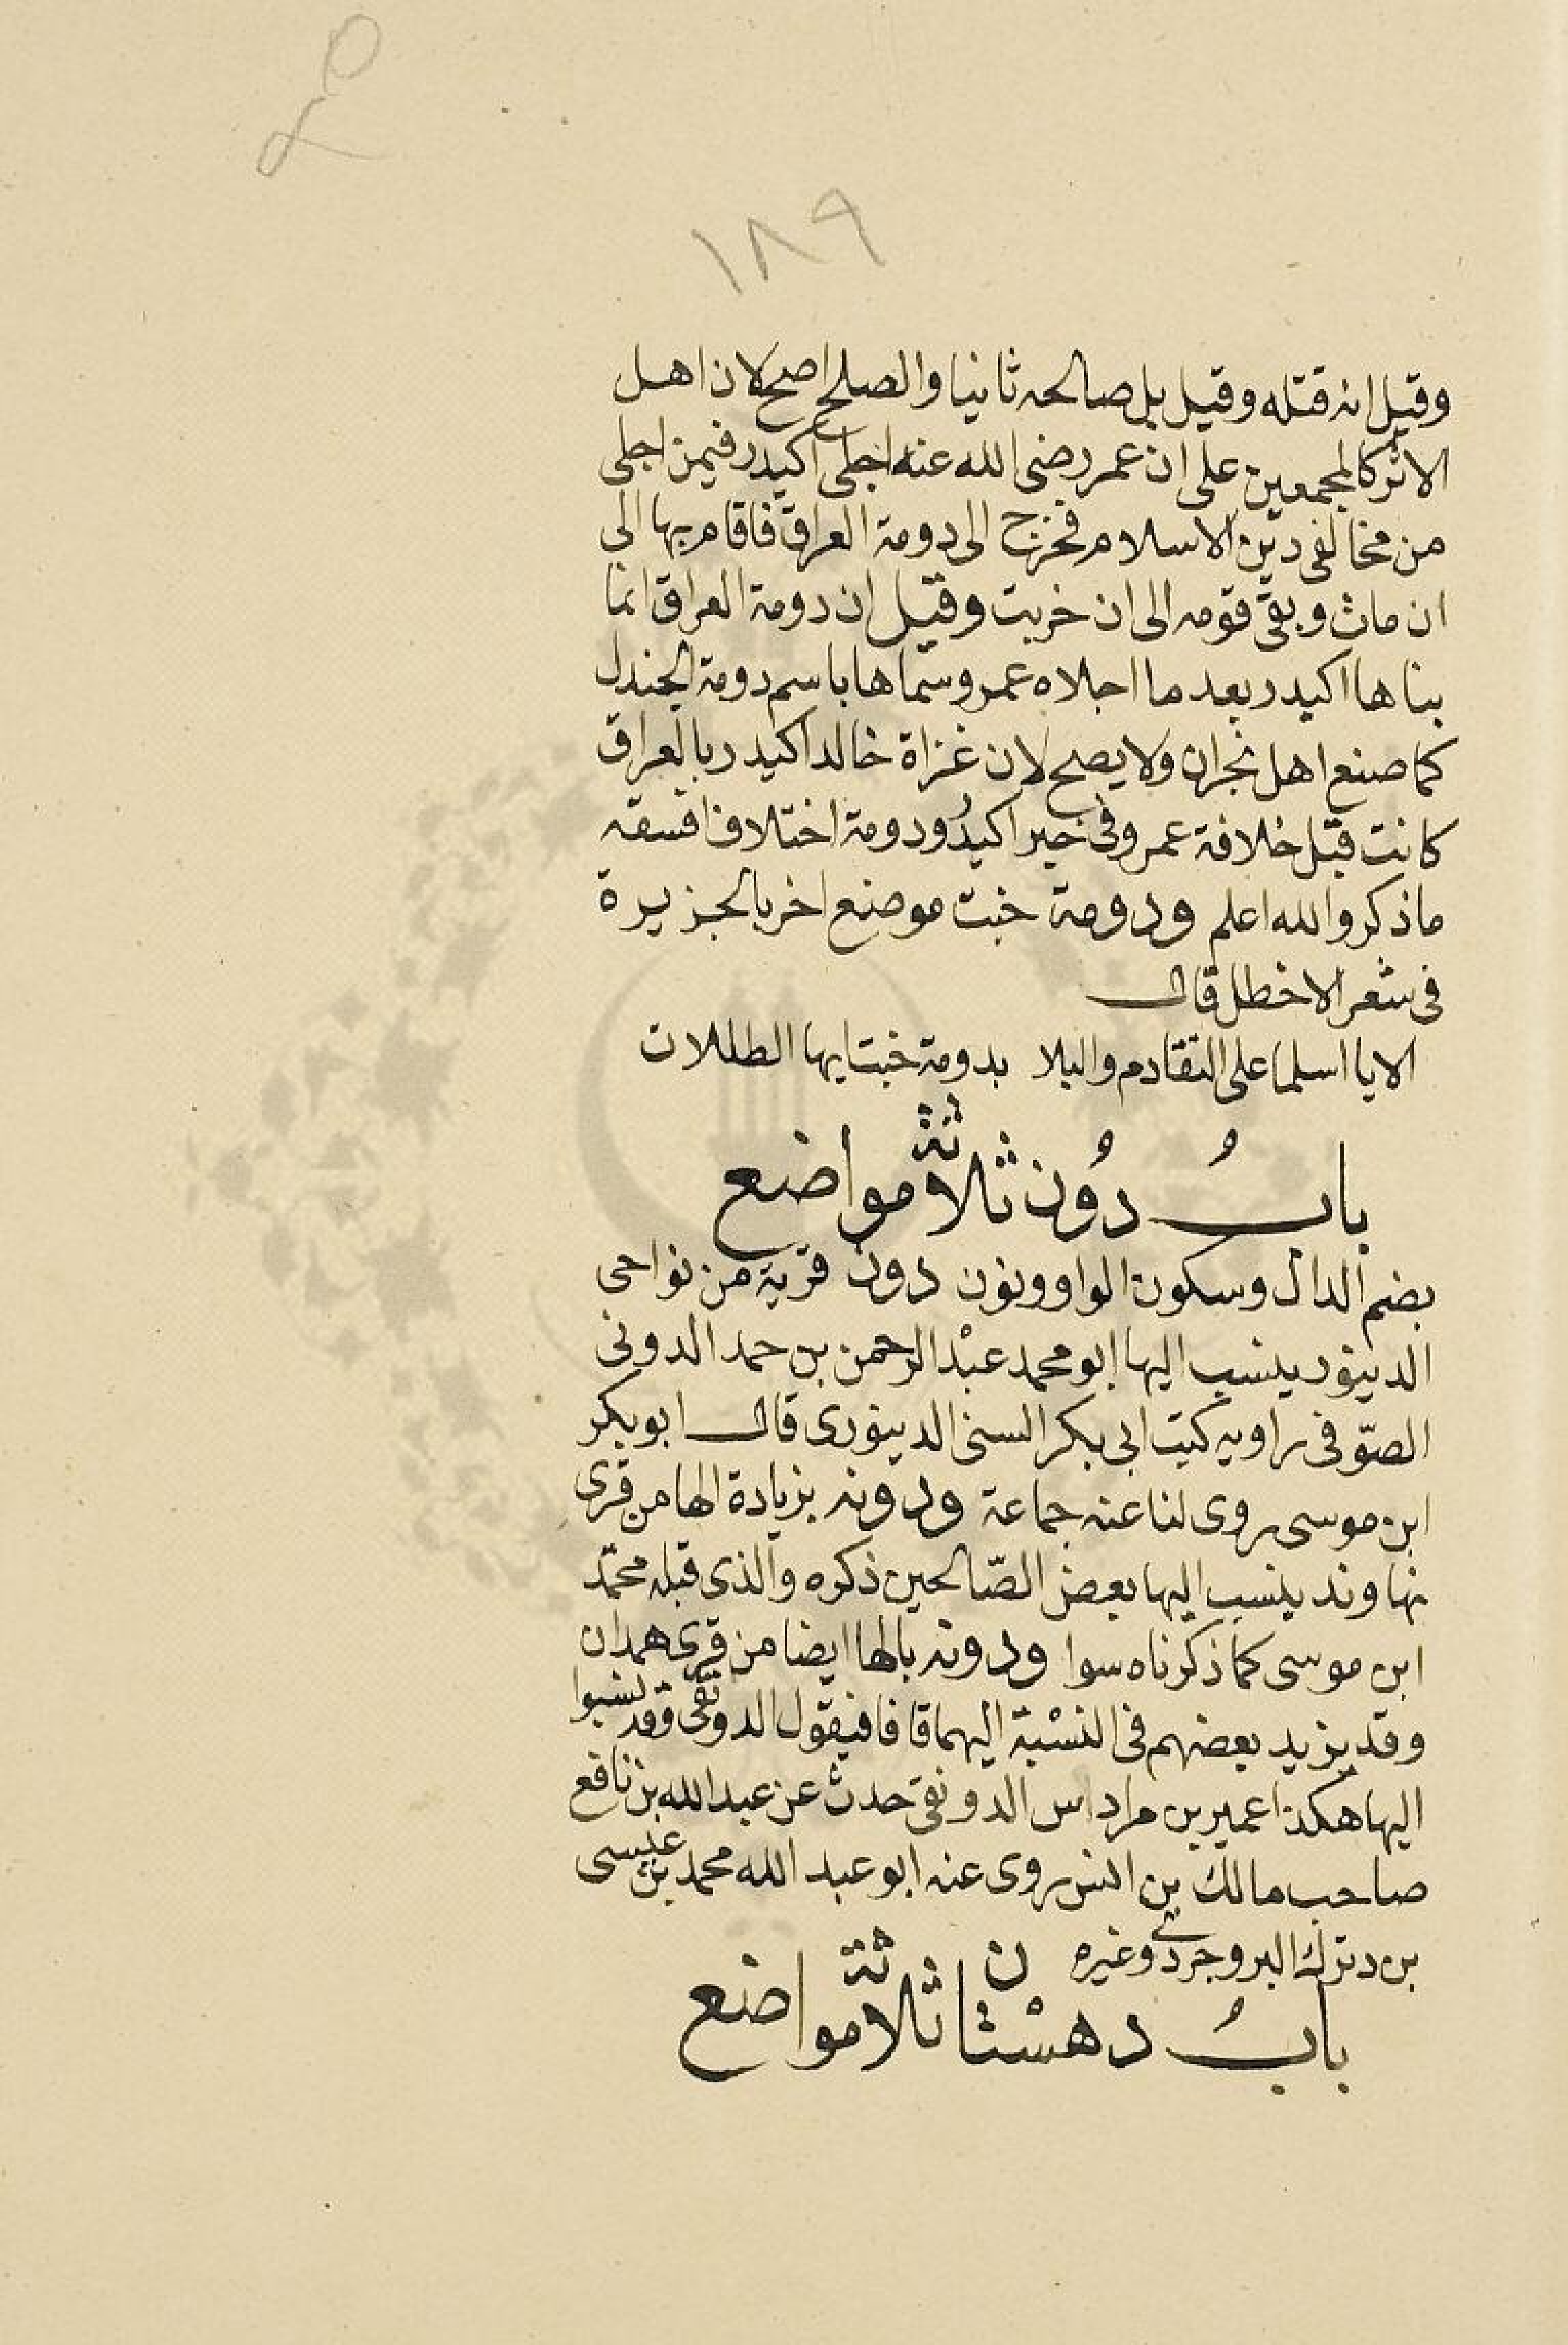 ١٨٩
وقيل انه قتله وقيل بل صالحه ثانيا والصلح اصح لان اهل
الاثر كالمجمعين على ان عمر رضى الله عنه اجلى اكيدر فيمن اجلى
من مخالفى دين الاسلام فخرج الى دومة العراق فاقام بها الى
ان مات وبقى قومه الى ان خربت وقيل ان دومة العراق انما
بناها اكيدر بعد ما اجلاه عمر وسماها باسم دومة الجندل
كما صنع اهل نجران ولا يصح لان غزاة خالد اكيدر بالعراق
كانت قبل خلافة عمر وفى خبر اكيدُر ودومة اختلاف افسقه
ما ذكر والله اعلم ودومة خبت موضع اخر بالجزيرة
فى شعر الاخطل قال
الا يا اسلما على التقادم والبلا بدومة خبت ايها الطللان
بابُ دُون ثلاثة مواضع
بضم الدال وسكون الواو ونون دون قرية من نواحى
الدينور ينسب اليها ابو محمد عبْد الرحمن بن حمد الدونى
الصّوفى راويه كتب ابى بكر السنى الدينورى قال ابو بكر
ابن موسى روى لنا عنه جماعة ودونه بزيادة الها من قرى
نهاوند ينسب اليها بعض الصّالحين ذكره والذى قبله محمّد
ابن موسى كما ذكرناه سوا ودونه بالها ايضا من قرى همدان
وقد يزيد بعضهم فى النسْبة اليهما قافا فيقول الدونقى وقد نسبوا
اليها هكذا عمير بن مرداس الدونقى حدث عن عبد الله بن نافع
صاحب مالك بن انس روى عنه ابو عبد الله محمد بن عيسى
بن ديزك البروجردى وغيره
بابُ دهسْتان ثلاثة مواضع